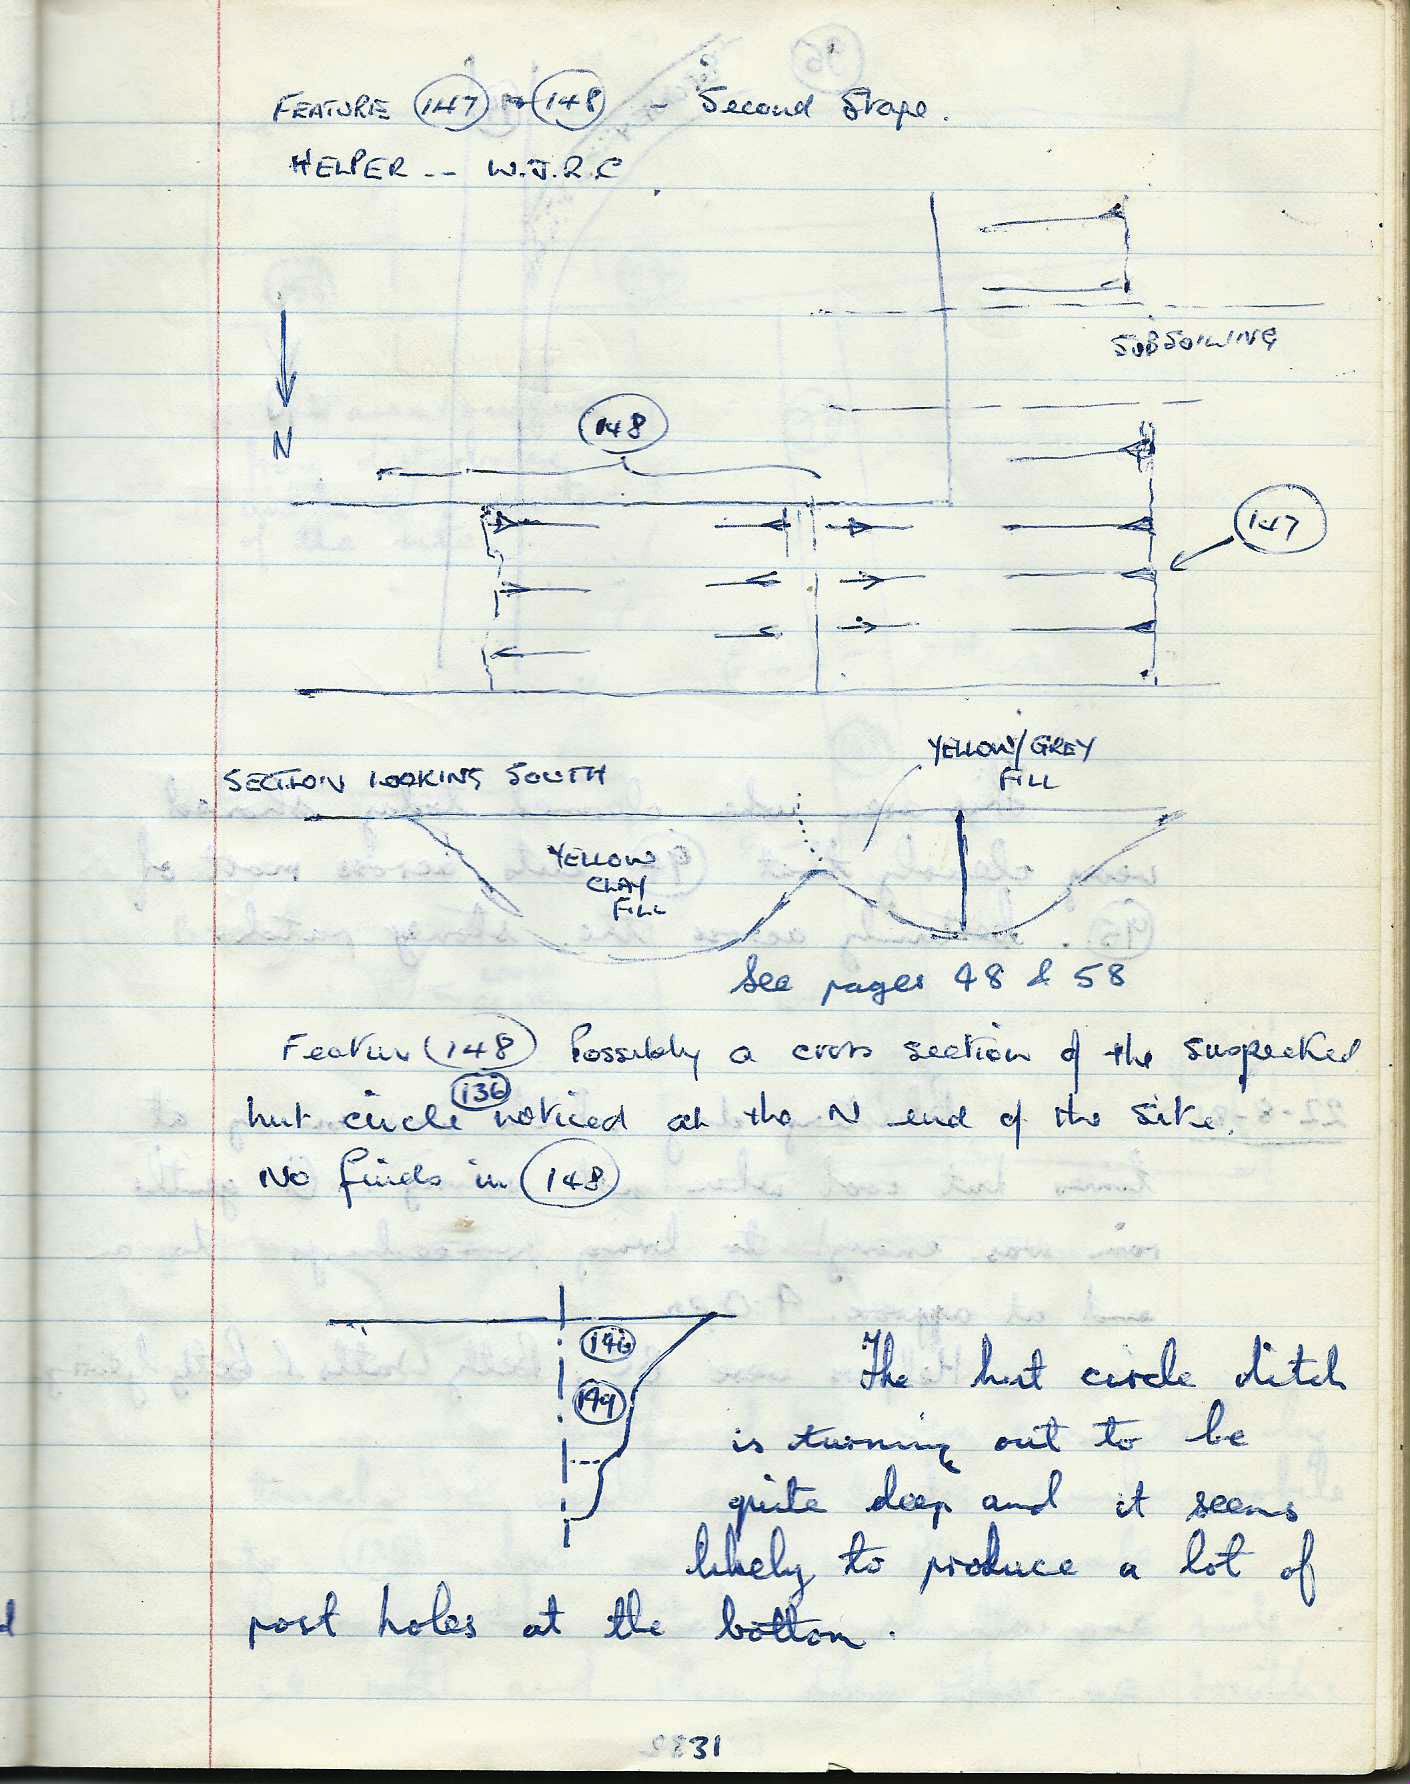 FEATURE 147 + 148 - Second Stage.
HELPER -- W.J.R.C
SUBSOILING
N
148
147
SECTION LOOKING SOUTH
YELLOW/GREY
FILL
YELLOW
CLAY
FILL
See pages 48 & 58
Feature 148 Possibly a cross section of the suspected
136
hut circle noticed at the N end of the site.
No finds in 148
146
149
The hut circle ditch
is turning out to be
quite deep and it seems
likely to produce a lot of
post holes at the bottom.
31